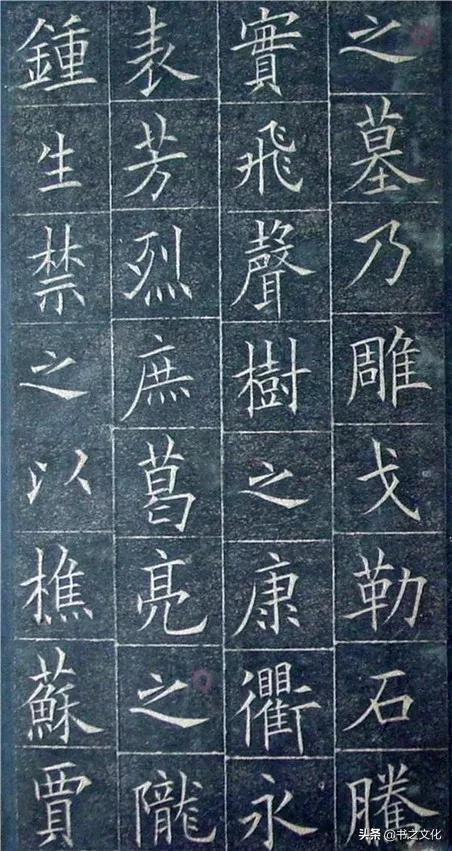 之墓乃雕戈勒石騰
實飛聲樹之康衢永
表芳烈庶葛亮之隴
鍾生禁之以樵蘇賈
头条 @书之文化